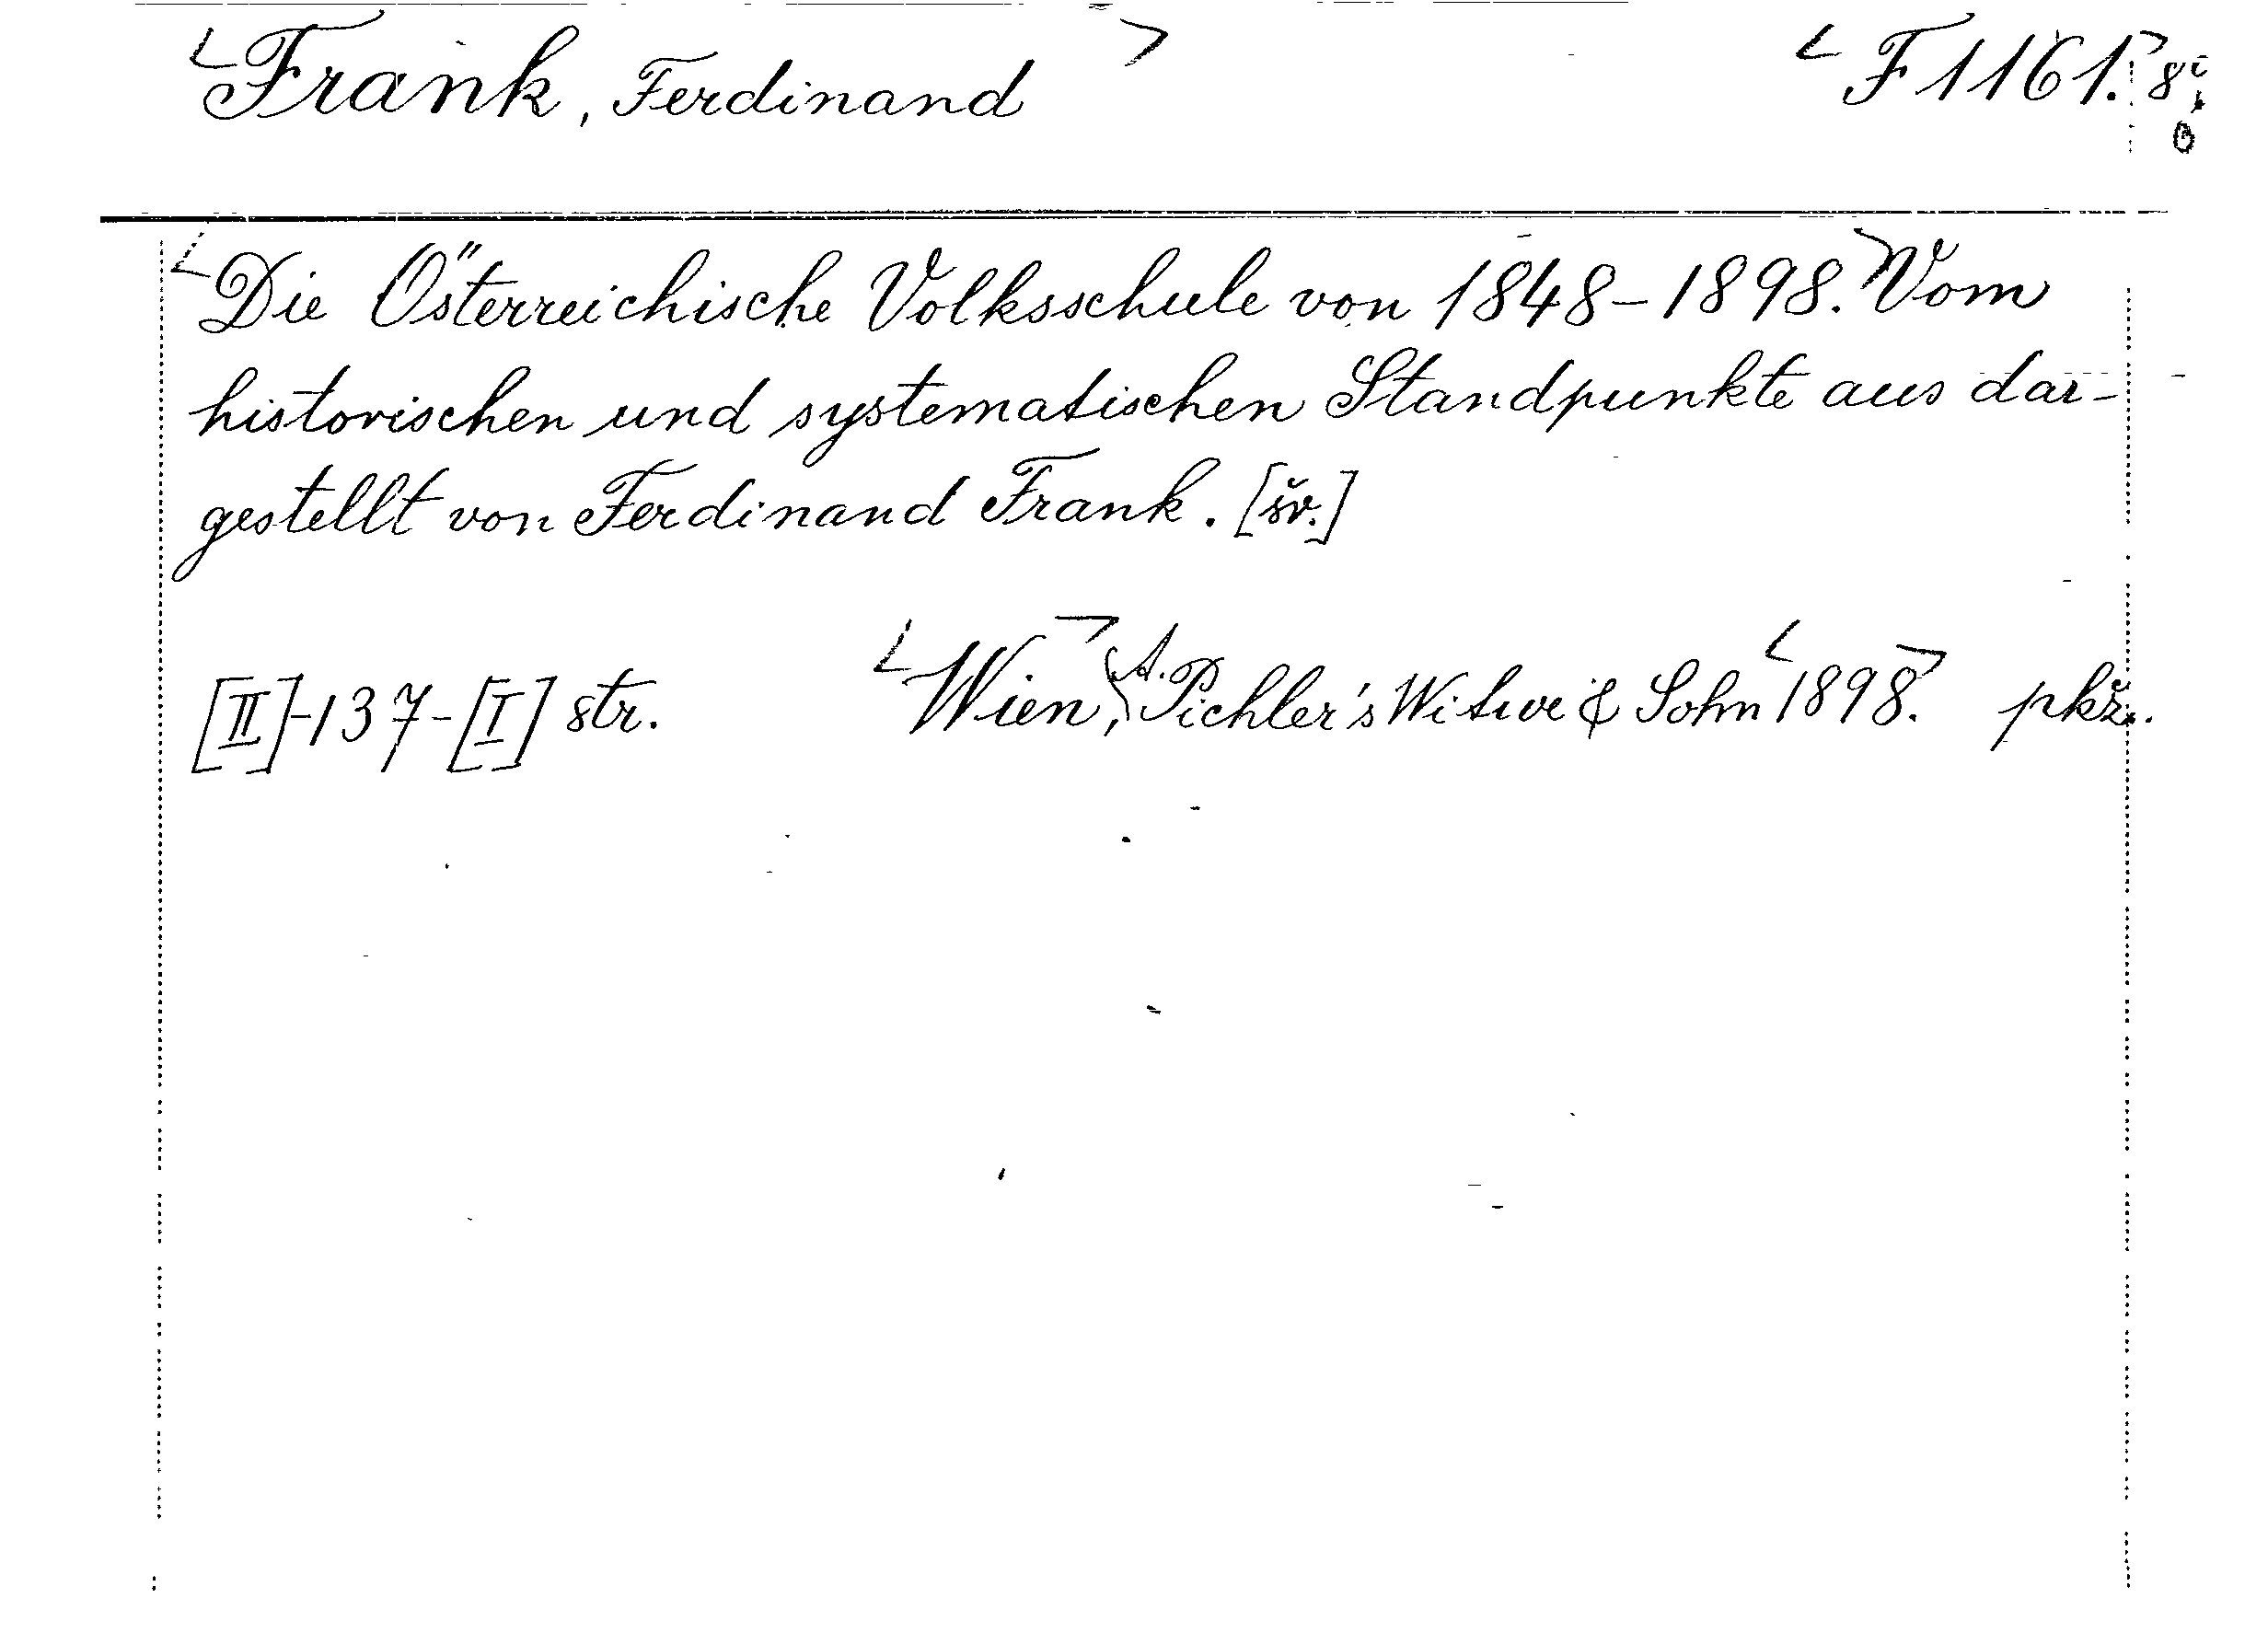 Frank, Ferdinand F 1161. 8
Die Österreichische Volksschule von 1848-1898. Vom
historischen und systematischen Standpunkte aus dar-
gestellt von Ferdinand Frank. [šv.]
[II]-137-[I] str. Wien, A. Pichler's Witwe & Sohn 1898. pkž.